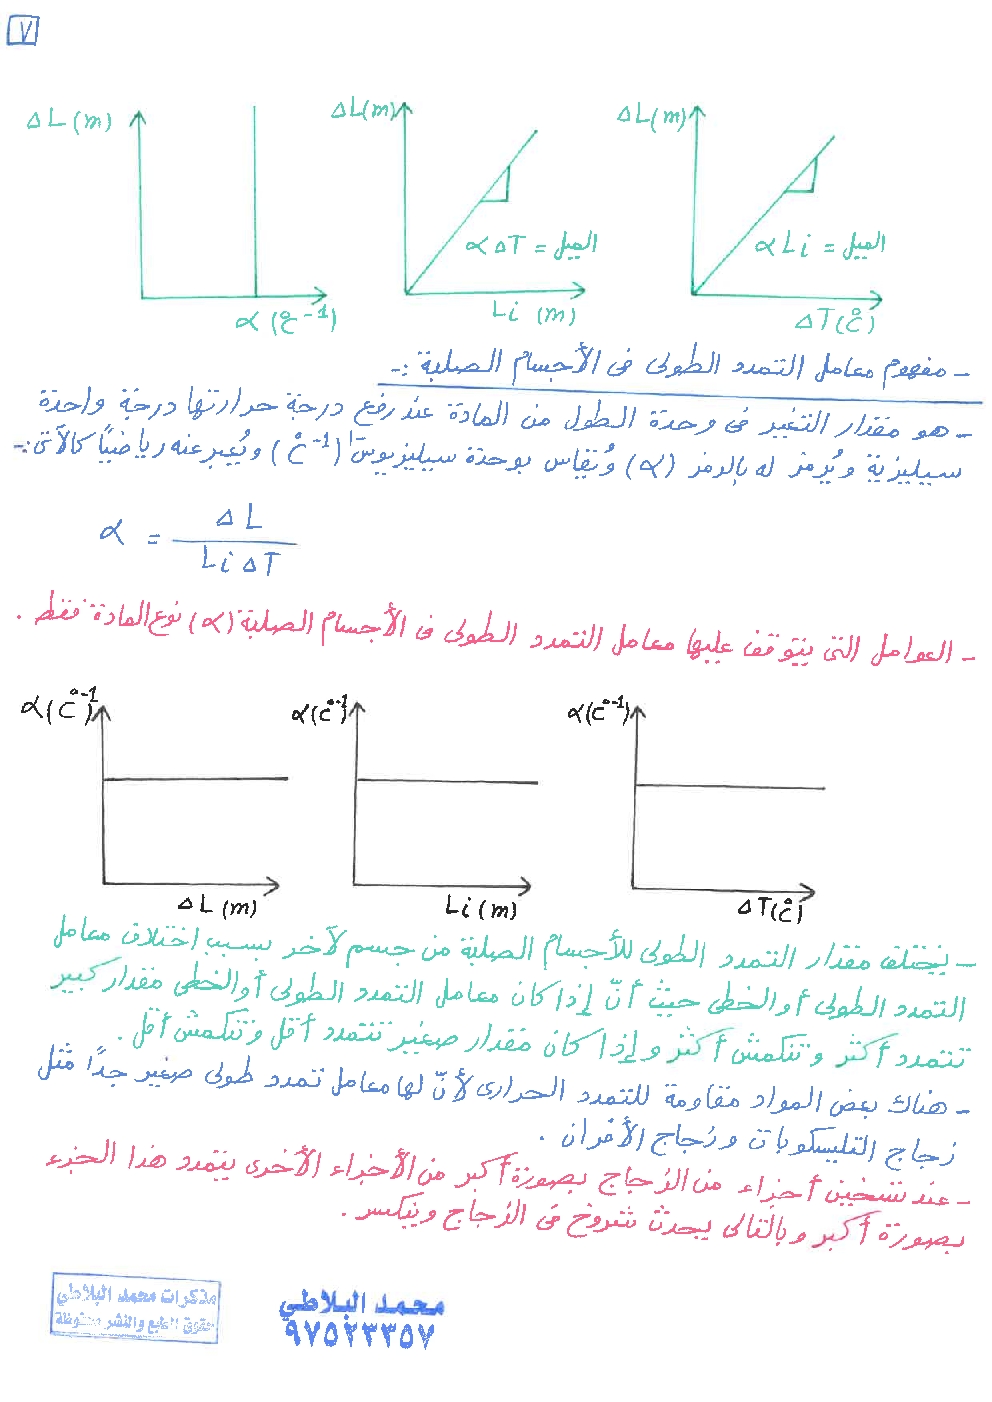 ٧
ΔL(m)
الميل = α Li
ΔT(C°)
ΔL(m)
الميل = α ΔT
Li (m)
ΔL(m)
α (C°⁻¹)
- مفهوم معامل التمدد الطولى فى الأجسام الصلبة :-
- هو مقدار التغير فى وحدة الطول من المادة عند رفع درجة حرارتها درجة واحدة
سيليزية ويُرمز له بالرمز (α) وتُقاس بوحدة سيليزيوس⁻¹ (C°⁻¹) ويُعبر عنه رياضيًا كالآتى :-
α = ΔL / Li ΔT
- العوامل التى يتوقف عليها معامل التمدد الطولى فى الأجسام الصلبة (α) نوع المادة فقط .
α(C°⁻¹)
ΔT(C°)
α(C°⁻¹)
Li (m)
α(C°⁻¹)
ΔL (m)
- يختلف مقدار التمدد الطولى للأجسام الصلبة من جسم لآخر بسبب اختلاف معامل
التمدد الطولى أو الخطى حيث أنّ إذا كان معامل التمدد الطولى أو الخطى مقدار كبير
تتمدد أكثر وتنكمش أكثر وإذا كان مقدار صغير تتمدد أقل وتنكمش أقل .
- هناك بعض المواد مقاومة للتمدد الحرارى لأنّ لها معامل تمدد طولى صغير جدًا مثل
زجاج التليسكوبات وزجاج الأفران .
- عند تسخين أجزاء من الزجاج بصورة أكبر من الأجزاء الأخرى يتمدد هذا الجزء
بصورة أكبر وبالتالى يحدث شروخ فى الزجاج وينكسر .
محمد البلاطي
٩٧٥٢٣٣٥٧
مذكرات محمد البلاطي
حقوق الطبع والنشر محفوظة